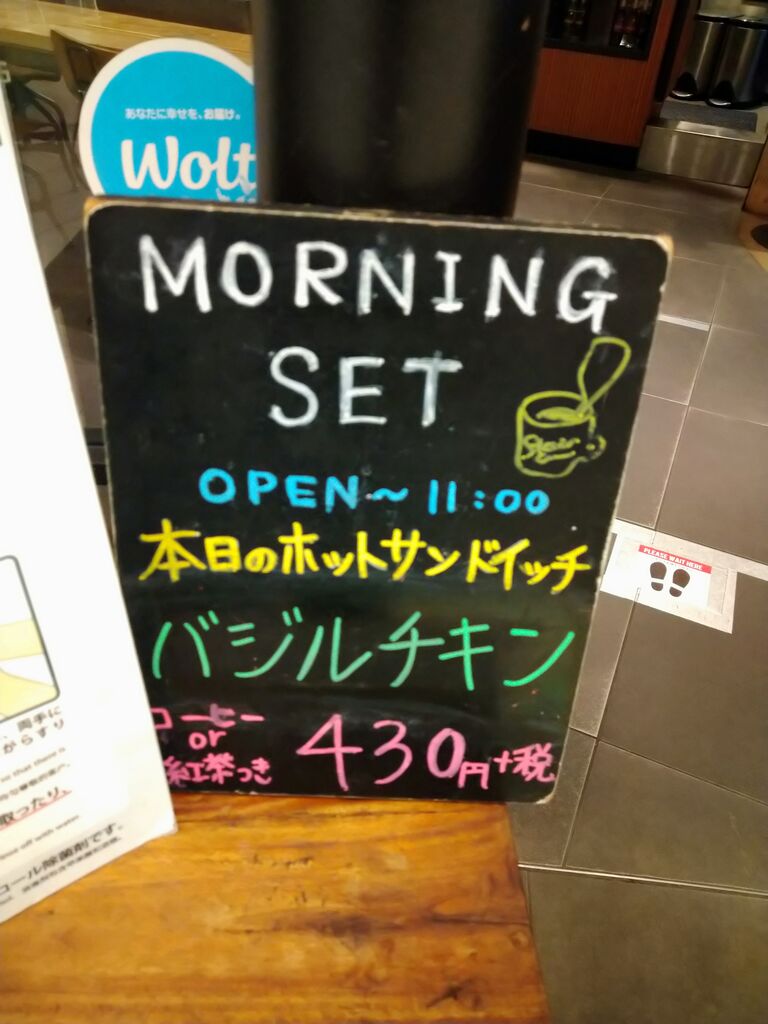 あなたに幸せを、お届け。
Wolt
MORNING
SET
OPEN~11:00
本日のホットサンドイッチ
バジルチキン
コーヒー
or
紅茶つき
430円+税
PLEASE WAIT HERE
両手に
からすり
so that there is
取ったり、
コール除菌剤です。